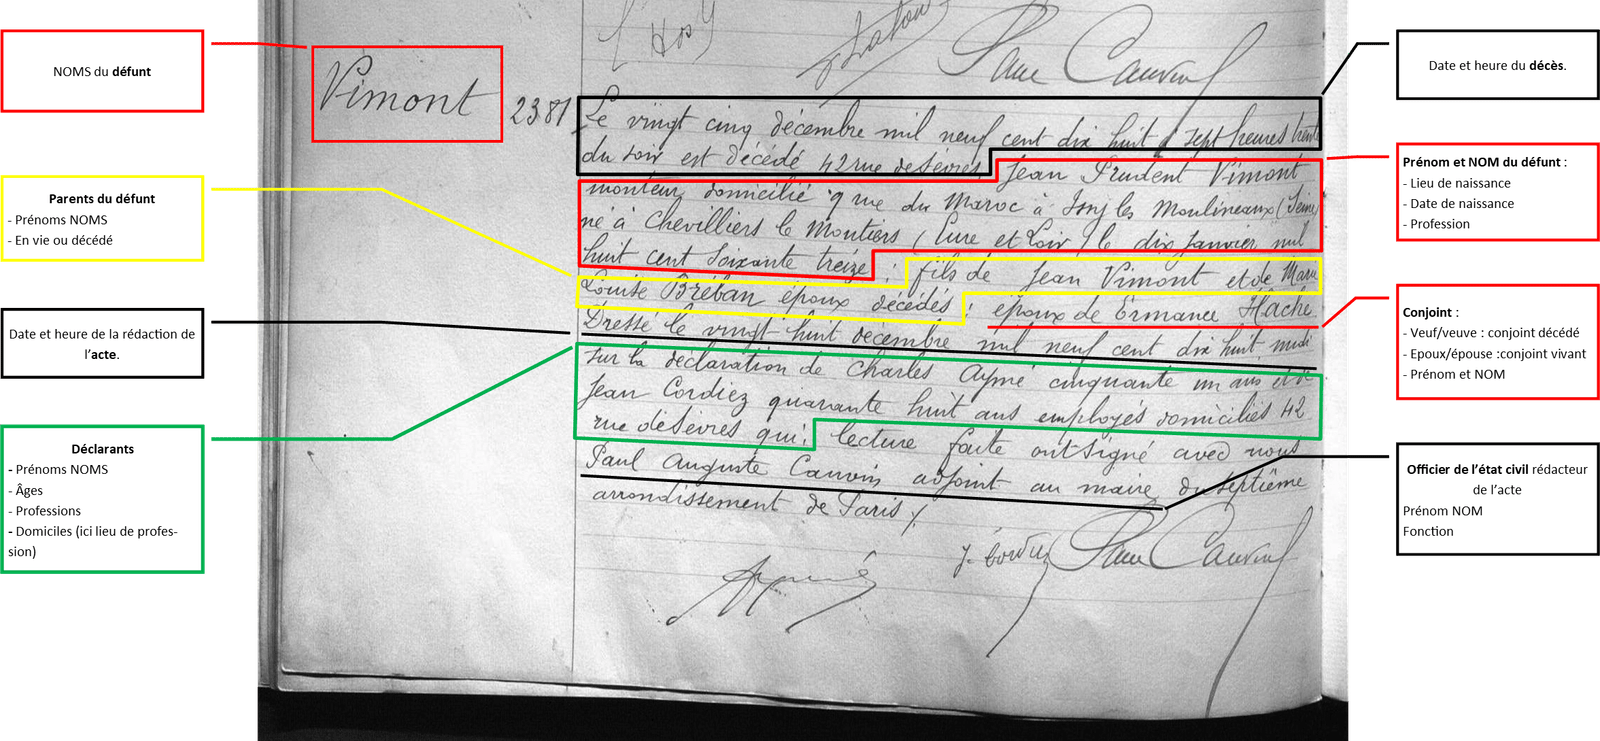 NOMS du défunt
Parents du défunt
- Prénoms NOMS
- En vie ou décédé
Date et heure de la rédaction de
l’acte.
Déclarants
- Prénoms NOMS
- Âges
- Professions
- Domiciles (ici lieu de profes-
sion)
Vimont
2381
Paul Cauvin
Le vingt cinq décembre mil neuf cent dix huit, sept heures trente
du soir est décédé 42 rue de Sèvres, Jean Prudent Vimont
monteur domicilié 9 rue du Maroc à Issy les Moulineaux (Seine)
né à Chevilliers le Moutiers (Eure et Loir) le dix Janvier mil
huit cent soixante treize ; fils de Jean Vimont et de Marie
Louise Bréban époux décédés ; époux de Ermance Hache.
Dressé le vingt-huit décembre mil neuf cent dix huit, midi
sur la déclaration de Charles Aymé cinquante un ans et de
Jean Cordiez quarante huit ans employés domiciliés 42
rue de Sèvres qui, lecture faite ont signé avec nous
Paul Auguste Cauvin adjoint au maire du septième
arrondissement de Paris
Aymé
J. Cordiez
Paul Cauvin
Date et heure du décès.
Prénom et NOM du défunt :
- Lieu de naissance
- Date de naissance
- Profession
Conjoint :
- Veuf/veuve : conjoint décédé
- Epoux/épouse :conjoint vivant
- Prénom et NOM
Officier de l’état civil rédacteur
de l’acte
Prénom NOM
Fonction